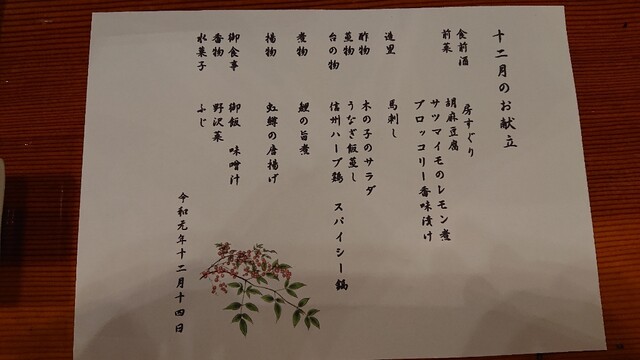 十二月のお献立
食前酒 房すぐり
前菜 胡麻豆腐
サツマイモのレモン煮
ブロッコリー香味漬け
造里 馬刺し
酢物 木の子のサラダ
蒸物 うなぎ飯蒸し
台の物 信州ハーブ鶏 スパイシー鍋
煮物 鯉の旨煮
揚物 虹鱒の唐揚げ
御食事 御飯 味噌汁
香物 野沢菜
水菓子 ふじ
令和元年十二月十四日